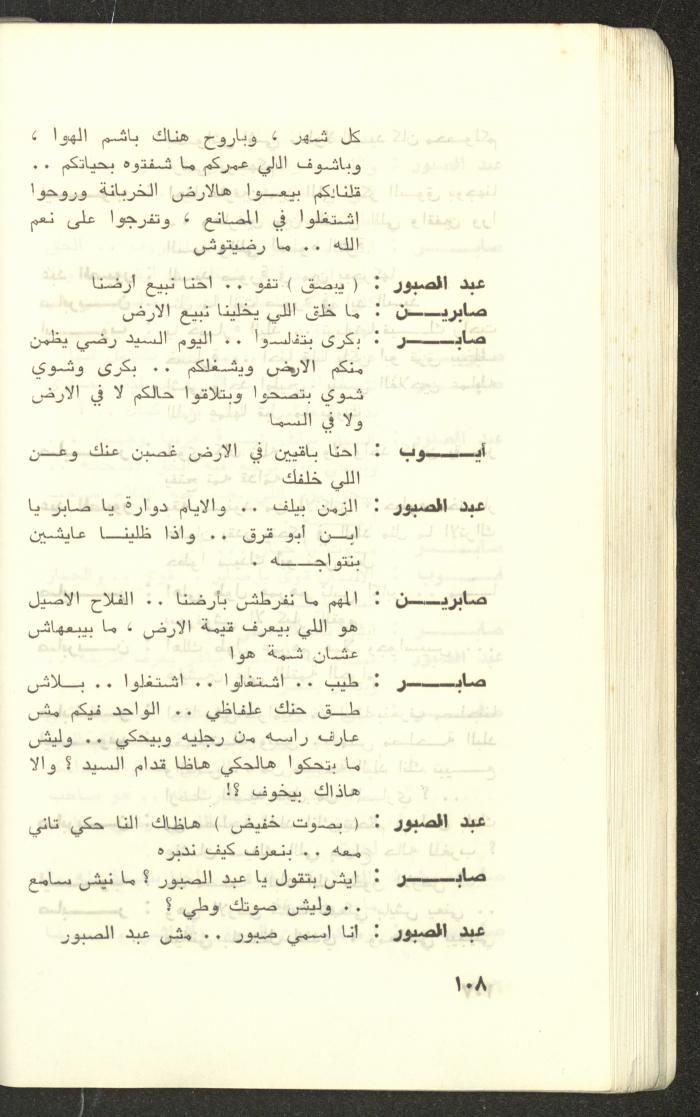 كل شهر ، وباروح هناك باشم الهوا ،
وباشوف اللي عمركم ما شفتوه بحياتكم ..
قلنالكم بيعوا هالارض الخربانة وروحوا
اشتغلوا في المصانع ، وتفرجوا على نعم
الله .. ما رضيتوش
عبد الصبور : ( يبصق ) تفو .. احنا نبيع أرضنا
صابرين : ما خلق اللي يخلينا نبيع الارض
صابر : بكرى بتفلسوا .. اليوم السيد رضي يظمن
منكم الارض ويشغلكم .. بكرى وشوي
شوي بتصحوا وبتلاقوا حالكم لا في الارض
ولا في السما
أيوب : احنا باقيين في الارض غصبن عنك وعن
اللي خلفك
عبد الصبور : الزمن بيلف .. والايام دوارة يا صابر يا
ابن أبو قرق .. واذا ظلينا عايشين
بنتواجه .
صابرين : المهم ما نفرطش بأرضنا .. الفلاح الاصيل
هو اللي بيعرف قيمة الارض ، ما بيبعهاش
عشان شمة هوا
صابر : طيب .. اشتغلوا .. اشتغلوا .. بلاش
طق حنك علفاظي .. الواحد فيكم مش
عارف راسه من رجليه وبيحكي .. وليش
ما بتحكوا هالحكي هاظا قدام السيد ؟ والا
هاذاك بيخوف ؟!
عبد الصبور : ( بصوت خفيض ) هاظاك النا حكي تاني
معه .. بنعرف كيف ندبره
صابر : ايش بتقول يا عبد الصبور ؟ ما نيش سامع
.. وليش صوتك وطي ؟
عبد الصبور : انا اسمي صبور .. مش عبد الصبور
١٠٨